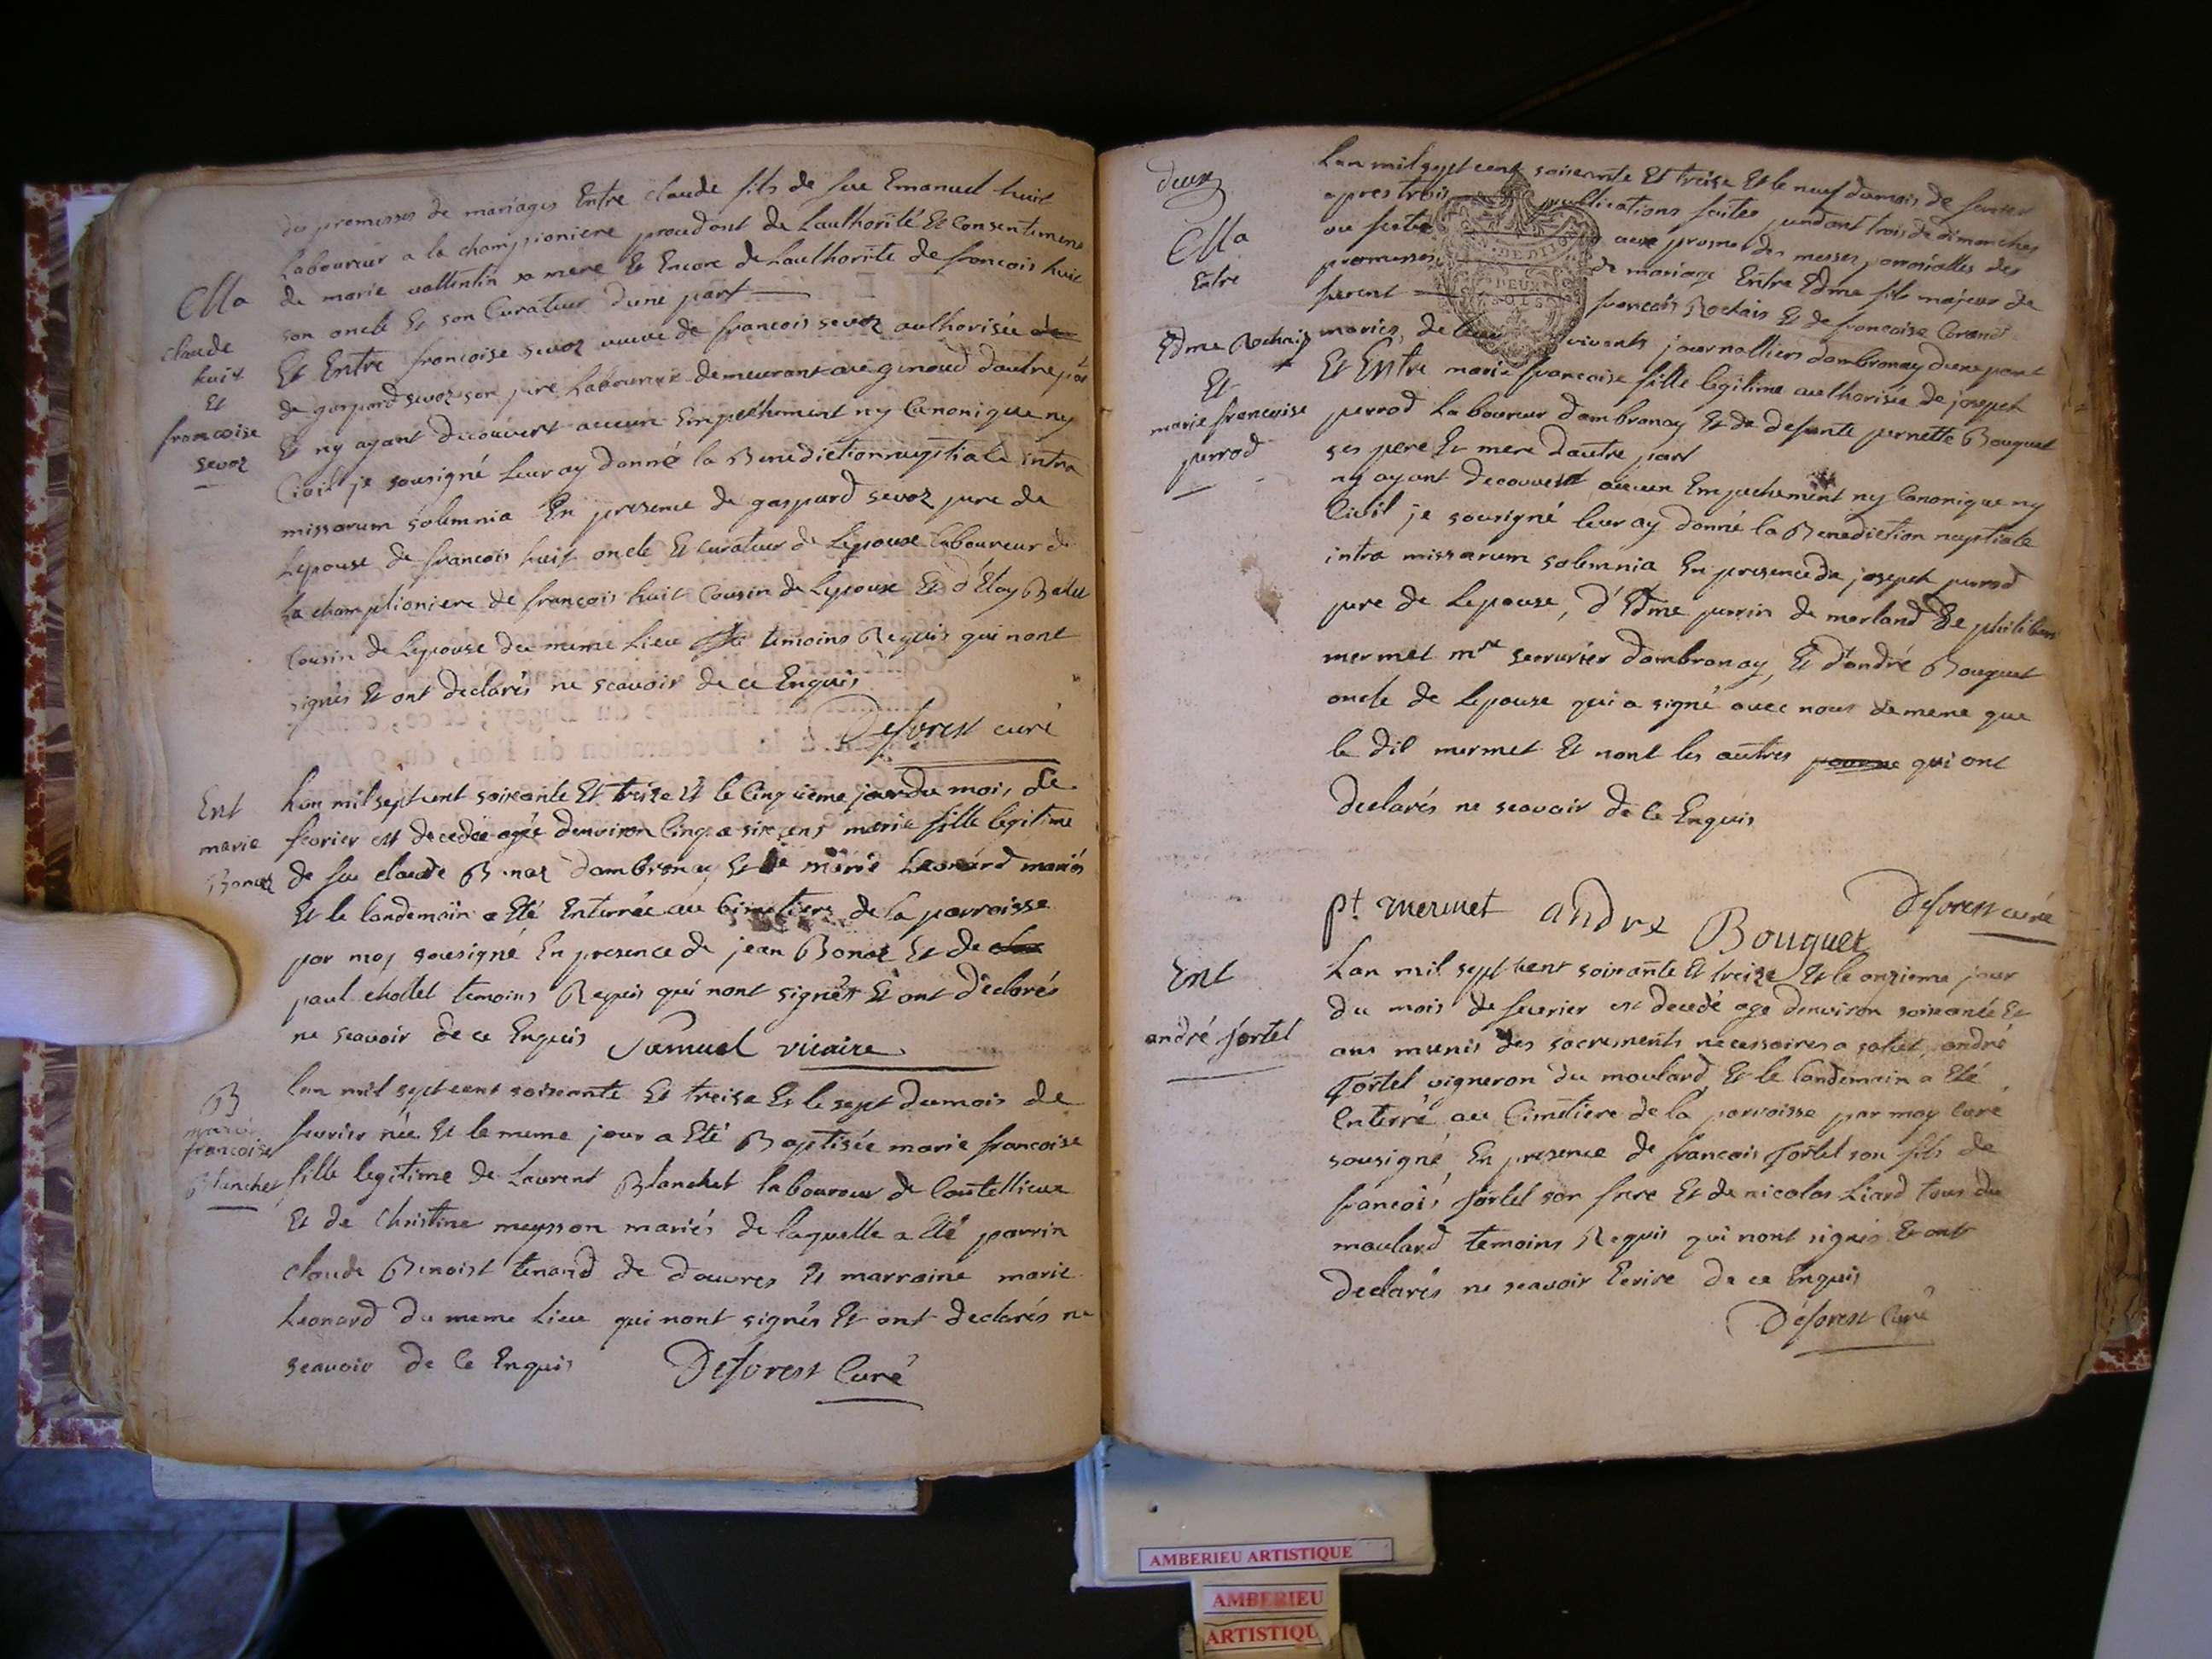 des promesses de mariages Entre claude fils de feu Emanuel huit
Laboureur a la championiere procedant de Lauthorité Et Consentement
de marie vallentin sa mere Et Encore de Lauthorité de francois huit
son oncle Et son Curateur dune part
Et Entre francoise sevoz veuve de francois sevoz authorisée de
de gaspard sevoz son pere Laboureur demeurant au genoud dautre part
Et ny ayant decouvert aucun Empechement ny Canonique ny
Civil je sousigné Leur ay donné la Benediction nuptiale intra
missarum solemnia En presence de gaspard sevoz pere de
Lepouse de francois huit oncle Et curateur de Lepoux Laboureur de
La championiere de francois huit Cousin de Lepoux Et d'Eloy
Cousin de Lepouse du meme Lieu temoins Requis qui nont
signés Et ont declarés ne scavoir de ce Enquis
Deforest curé
Ma
claude
huit
Et
francoise
sevoz
Lan mil sept cent soixante Et treize Et le Cinquieme jour du mois de
fevrier est decedée agée denviron Cinq a six ans marie fille legitime
de feu claude Bonaz dambronay Et de marie Leonard mariés
Et le landemain a Eté Enterrée au Cimetiere de la parroisse
par moy sousigné En presence de jean Bonaz Et de
paul chollet temoins Requis qui nont signés Et ont declarés
ne scavoir de ce Enquis Samuel vicaire
Ent
marie
Bonaz
Lan mil sept cent soixante Et treize Et le sept du mois de
fevrier née Et le meme jour a Eté Baptisée marie francoise
fille legitime de Laurent Blanchet laboureur de Coutellieux
Et de Christine meysson mariés de laquelle a Eté parrin
claude Benoist tenand de douvres Et marraine marie
Leonard du meme Lieu qui nont signés Et ont declarés ne
scavoir de ce Enquis Deforest Curé
B
marie
francoise
Blanchet
deux
Lan mil sept cent soixante Et treize Et le neuf du mois de fevrier
apres trois publications faites pendant trois de dimanches
ou festes aux prosnes des messes paroissialles des
promesses de mariage Entre Edme fils majeur de
furent francois Rochaix Et de francoise
mariés de leur vivants journalliers dambronay dune part
Et Entre marie francoise fille legitime authorisée de joseph
perrod Laboureur dambronay Et de defunte pernette Bouquet
ses pere Et mere dautre part
ny ayant decouvert aucun Empechement ny Canonique ny
Civil je sousigné leur ay donné la Benediction nuptiale
intra missarum solemnia En presence de joseph perrod
pere de Lepouse, d'Edme perrin de merland de philibert
mermet mre serrurier dambronay, Et d'andré Bouquet
oncle de Lepouse qui a signé avec nous de meme que
le dit mermet Et nont les autres qui ont
declarés ne scavoir de ce Enquis
pt. mermet andre Bouquet Deforest curé
Ma
Entre
Edme Rochaix
Et
marie francoise
perrod
Lan mil sept cent soixante Et treize Et le onzieme jour
du mois de fevrier est decedé age denviron soixante Et
ans munis des sacrements necessaires a salut, andré
Jortel vigneron du moulard, Et le landemain a Eté
Enterré au Cimetiere de la parroisse par moy Curé
sousigné En presence de francois Jortel son fils de
francois Jortel son frere Et de nicolas Liard tous du
moulard temoins Requis qui nont signés Et ont
declarés ne scavoir Ecrire de ce Enquis
Deforest Curé
Ent
andré Jortel
AMBERIEU ARTISTIQUE
AMBERIEU
ARTISTIQU